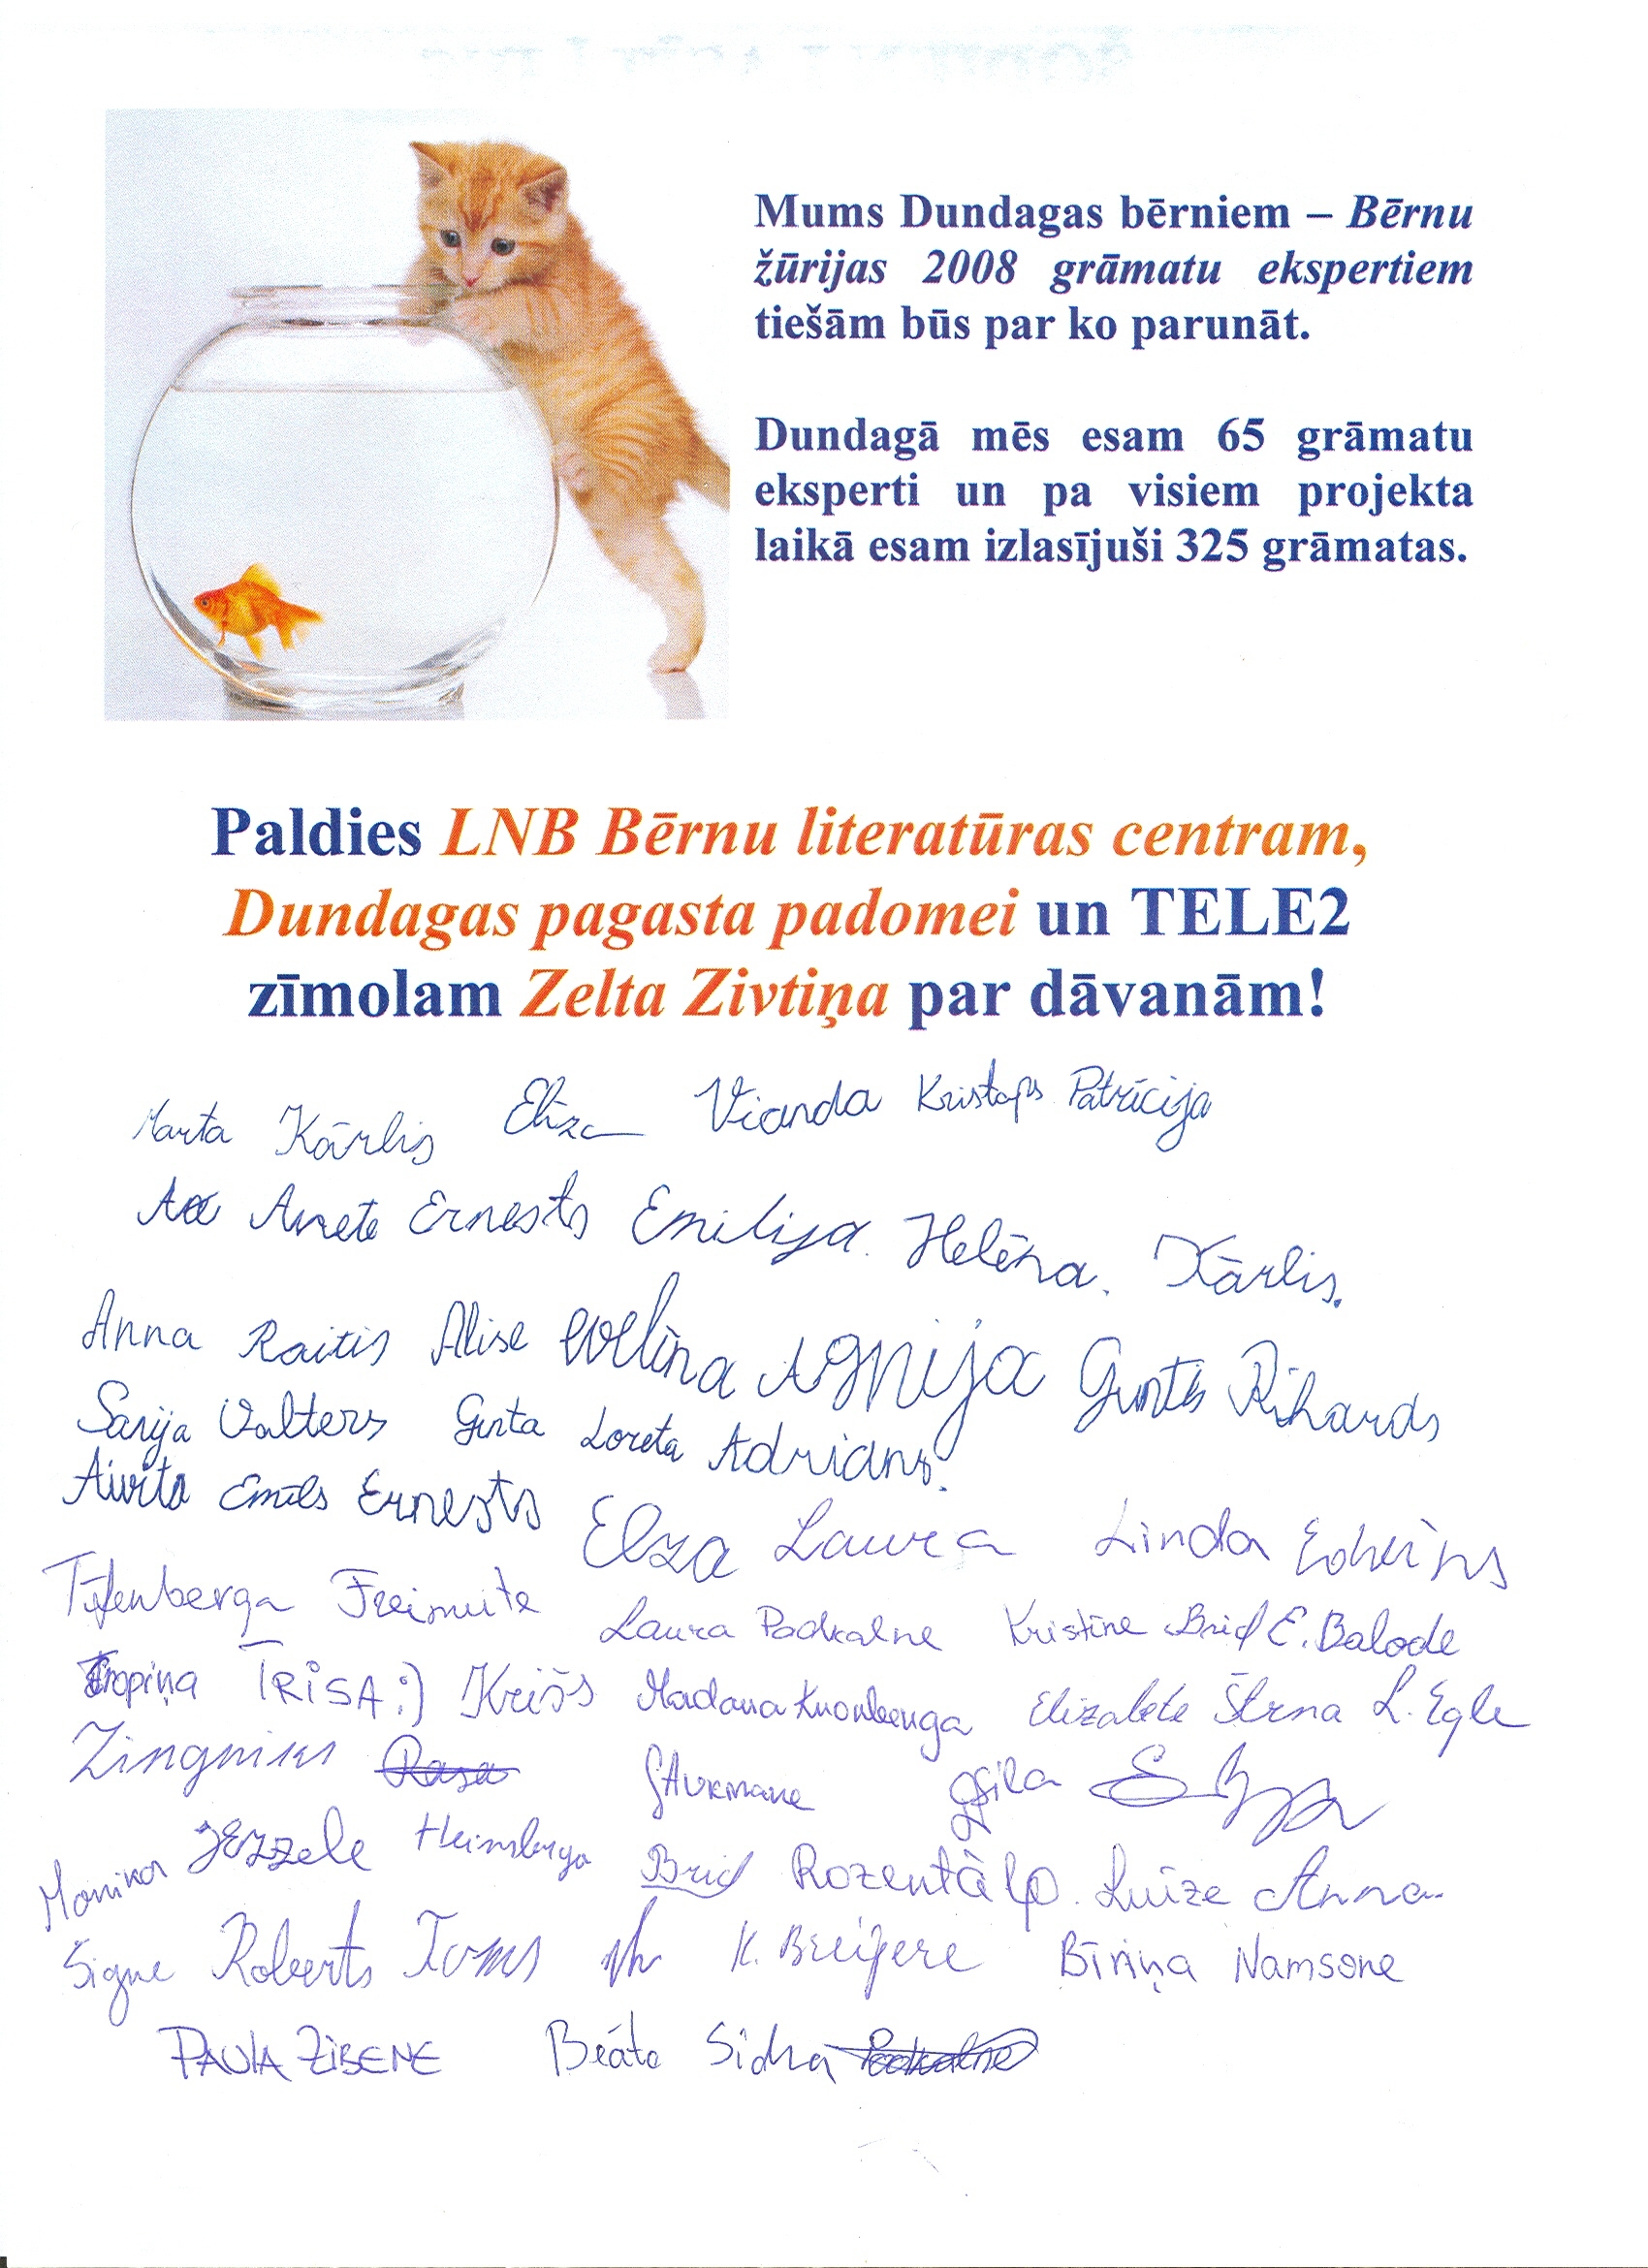 Mums Dundagas bērniem – Bērnu
žūrijas 2008 grāmatu ekspertiem
tiešām būs par ko parunāt.
Dundagā mēs esam 65 grāmatu
eksperti un pa visiem projekta
laikā esam izlasījuši 325 grāmatas.
Paldies LNB Bērnu literatūras centram,
Dundagas pagasta padomei un TELE2
zīmolam Zelta Zivtiņa par dāvanām!
Marta Kārlis Elīza Vianda Kristaps Patrīcija
Anete Ernests Emilija. Helēna. Kārlis.
Anna Raitis Alise Evelīna Agnija Guntis Rihards
Sanija Valters Gunta Loreta Adrians.
Aivita Emīls Ernests Elza Laura Linda Edvīns
Freimute Laura Padkalne Kristīne Brid E. Balode
TRISA:) Krišs Madana Elizabete L. Egle
Zingniks Rasa
Monika Heinsberga Brid Rozentāle Luīze Anna
Signe Roberts Toms K. Breijere Bīriņa Namsone
PAULA ZĪBENE Beāte Sidra Padkalne